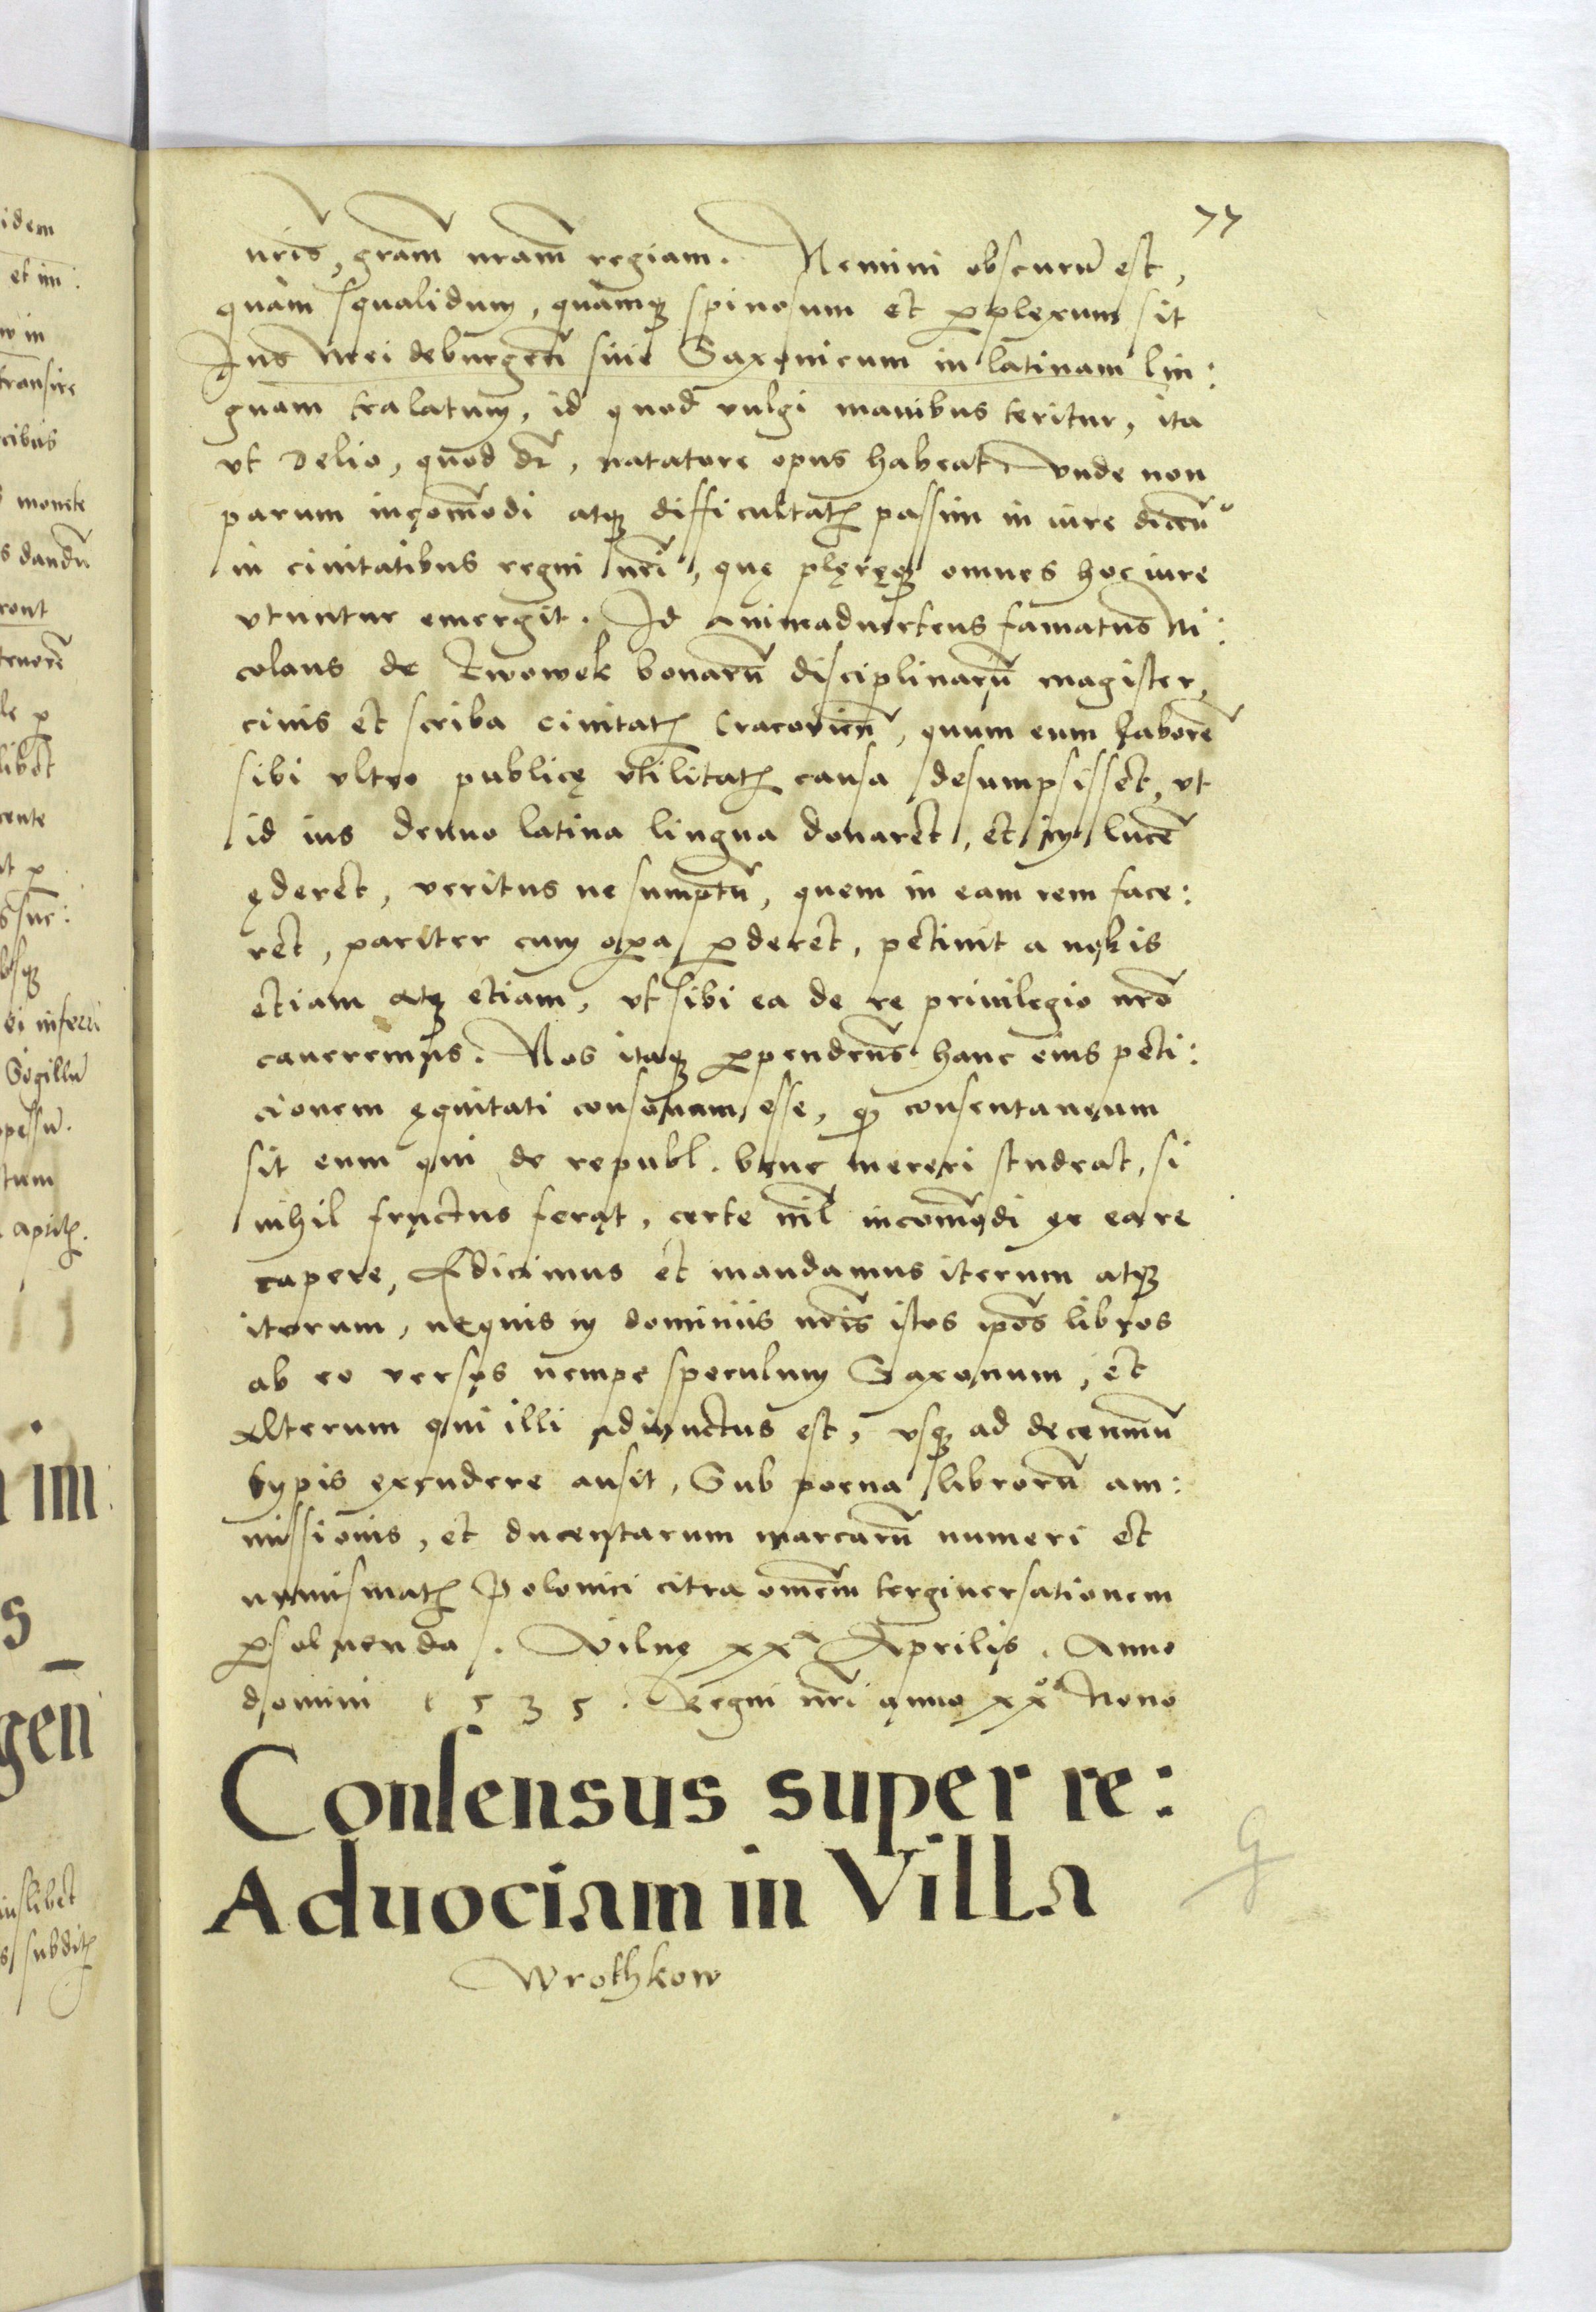 77
nris, gram nram regiam. Nemini obscuru est,
quam squalidum, quamq spinosum et pplexum sit
Ius Meideburgen siue Saxonicum in latinam lin:
guam tralatum, id quod vulgi manibus teritur, ita
vt Delio, quod dr, natatore opus habeat. Vnde non
parum incommodi atq difficultatis passim in iure dicendo
in ciuitatibus regni nri, quę plęręq omnes hoc iure
vtuntur emergit. Id animaduertens famatus Ni:
colaus de bonaru disciplinaru magister,
ciuis et scriba ciuitatis Cracovien, quum eum labore
sibi vltro publicę vtilitatis causa desumpsisset, vt
id ius denuo latina lingua donaret, et in luce
ęderet, veritus ne sumptu, quem in eam rem face:
ret, pariter cum opa pderet, petiuit a nobis
etiam atq etiam, vt sibi ea de re priuilegio nro
caueremus. Nos itaq ppendens hanc eius peti:
cionem ęquitati consonam esse, q consentaneum
sit eum qui de republ. bene mereri studeat, si
nihil fructus ferat, certe nil incommodi ex ea re
capere, Edicimus et mandamus iterum atq
iterum, nequis in dominiis nris istos ipos libros
ab eo versos nempe speculum Saxonum, et
Alterum qui illi adiunctus est, vsq ad decenniu
typis excudere ausit, Sub poena libroru am:
missionis, et ducentarum marcaru numeri et
numismatis Polonici citra omem tergiuersationem
psoluenda. Vilnę xxa Aprilis. Anno
domini 1535. Regni nri anno xxo Nono
Consensus super re:
Aduociam in Villa
Wrothkow